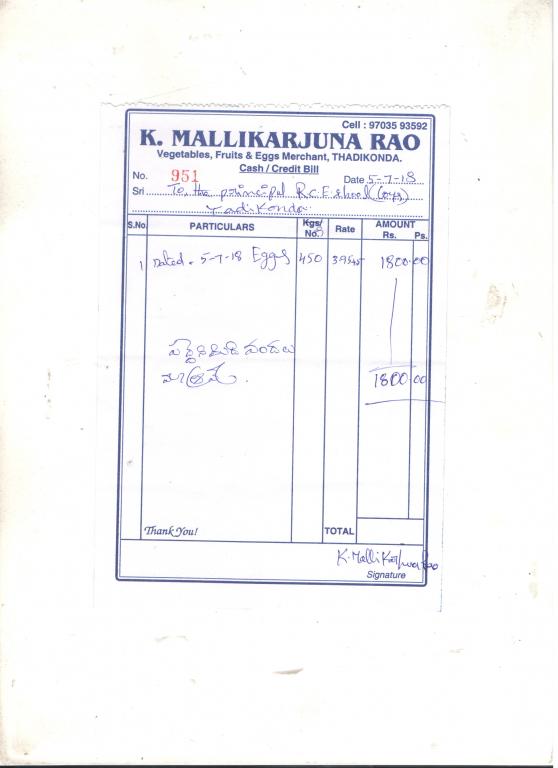 Cell : 97035 93592
K. MALLIKARJUNA RAO
Vegetables, Fruits & Eggs Merchant, THADIKONDA.
Cash / Credit Bill
No. 951 Date 5-7-18
Sri To the principal R.C.E school (Boys)
Tadikonda
S.No. PARTICULARS Kgs/ No.s Rate AMOUNT Rs. Ps.
1 Dated. 5-7-18 Eggs 450 1800.00
పద్దెనిమిది వందలు
మాత్రమే.
1800.00
Thank You! TOTAL
K. Mallikarjuna Rao
Signature